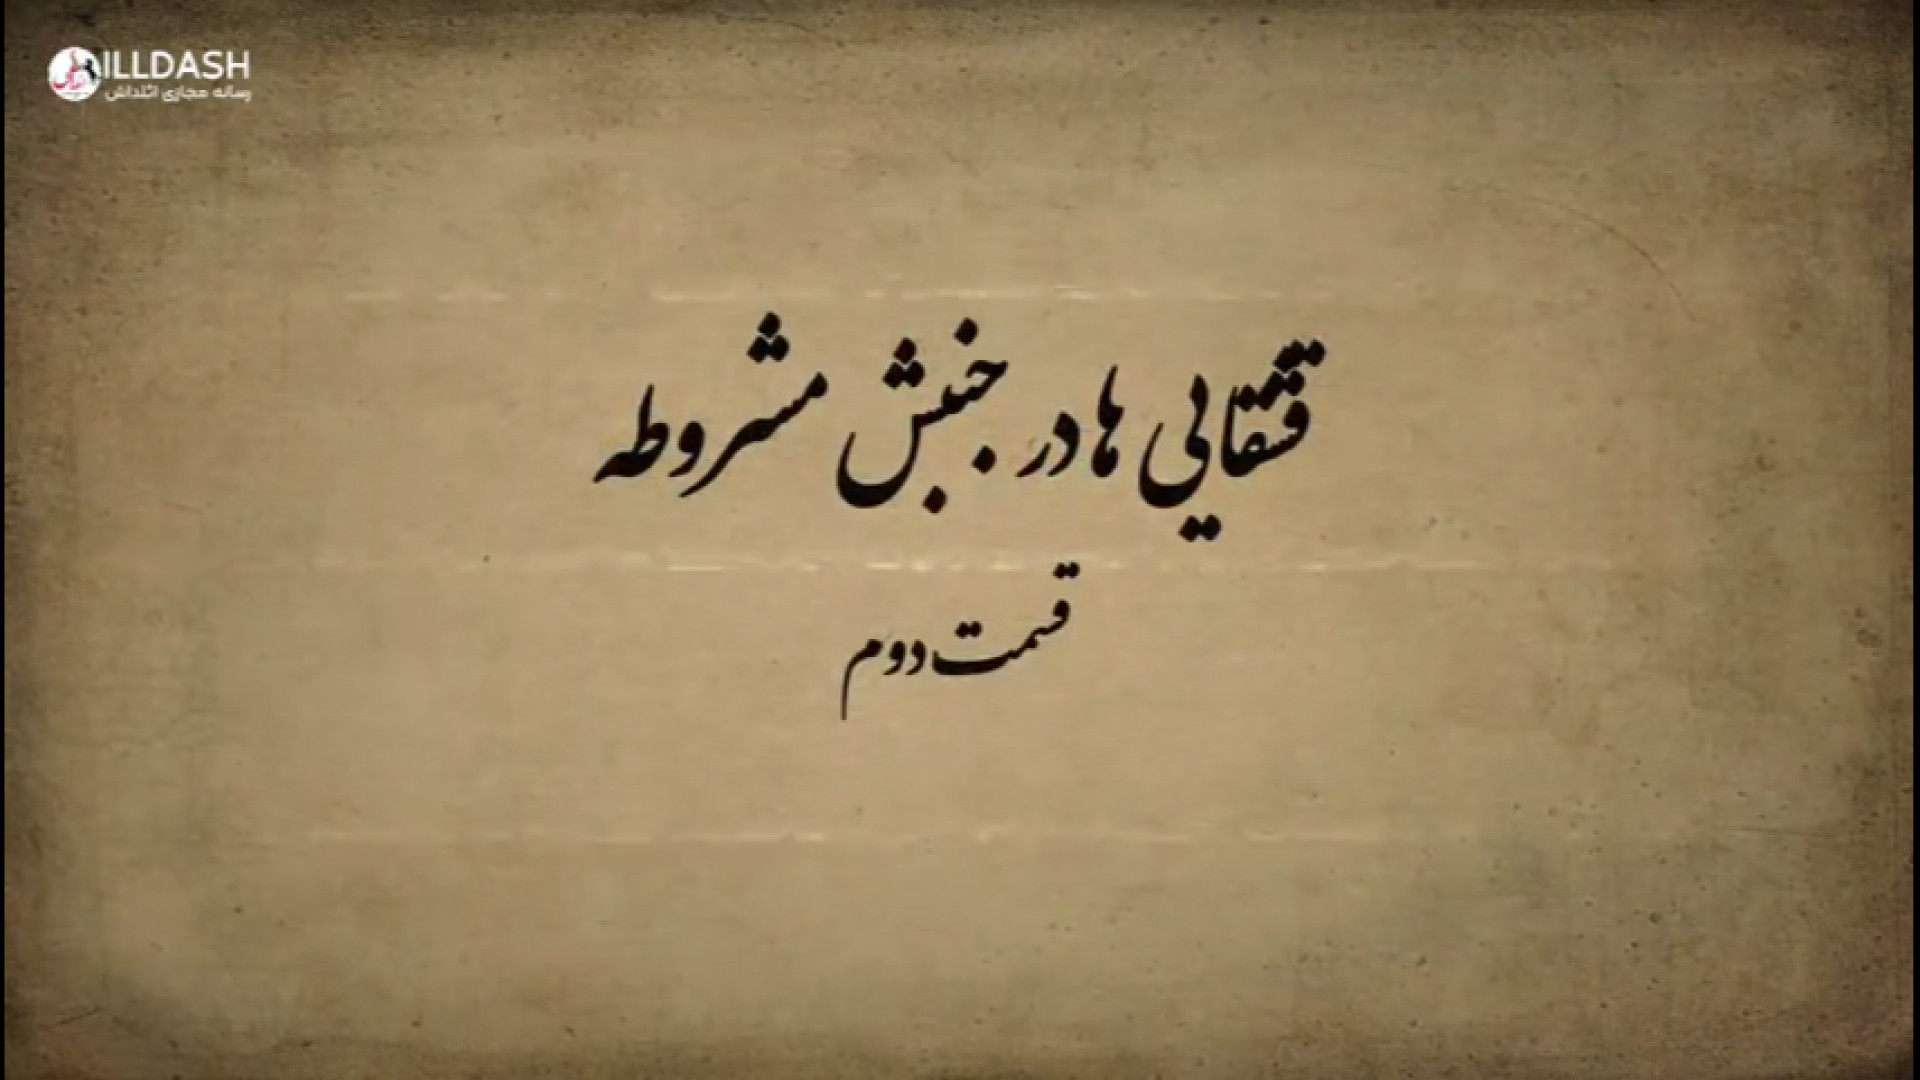 ILLDASH
رسانه مجازی ائلداش
قشقایی ها در جنبش مشروطه
قسمت دوم